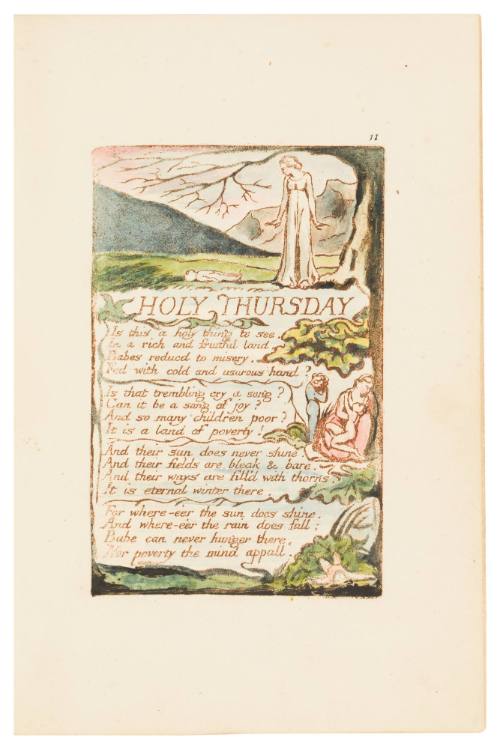 11
HOLY THURSDAY
Is this a holy thing to see.
In a rich and fruitful land.
Babes reducd to misery.
Fed with cold and usurous hand?
Is that trembling cry a song?
Can it be a song of joy?
And so many children poor?
It is a land of poverty!
And their sun does never shine.
And their fields are bleak & bare.
And their ways are fill'd with thorns.
It is eternal winter there.
For where-e'er the sun does shine.
And where-e'er the rain does fall:
Babe can never hunger there,
Nor poverty the mind appall.